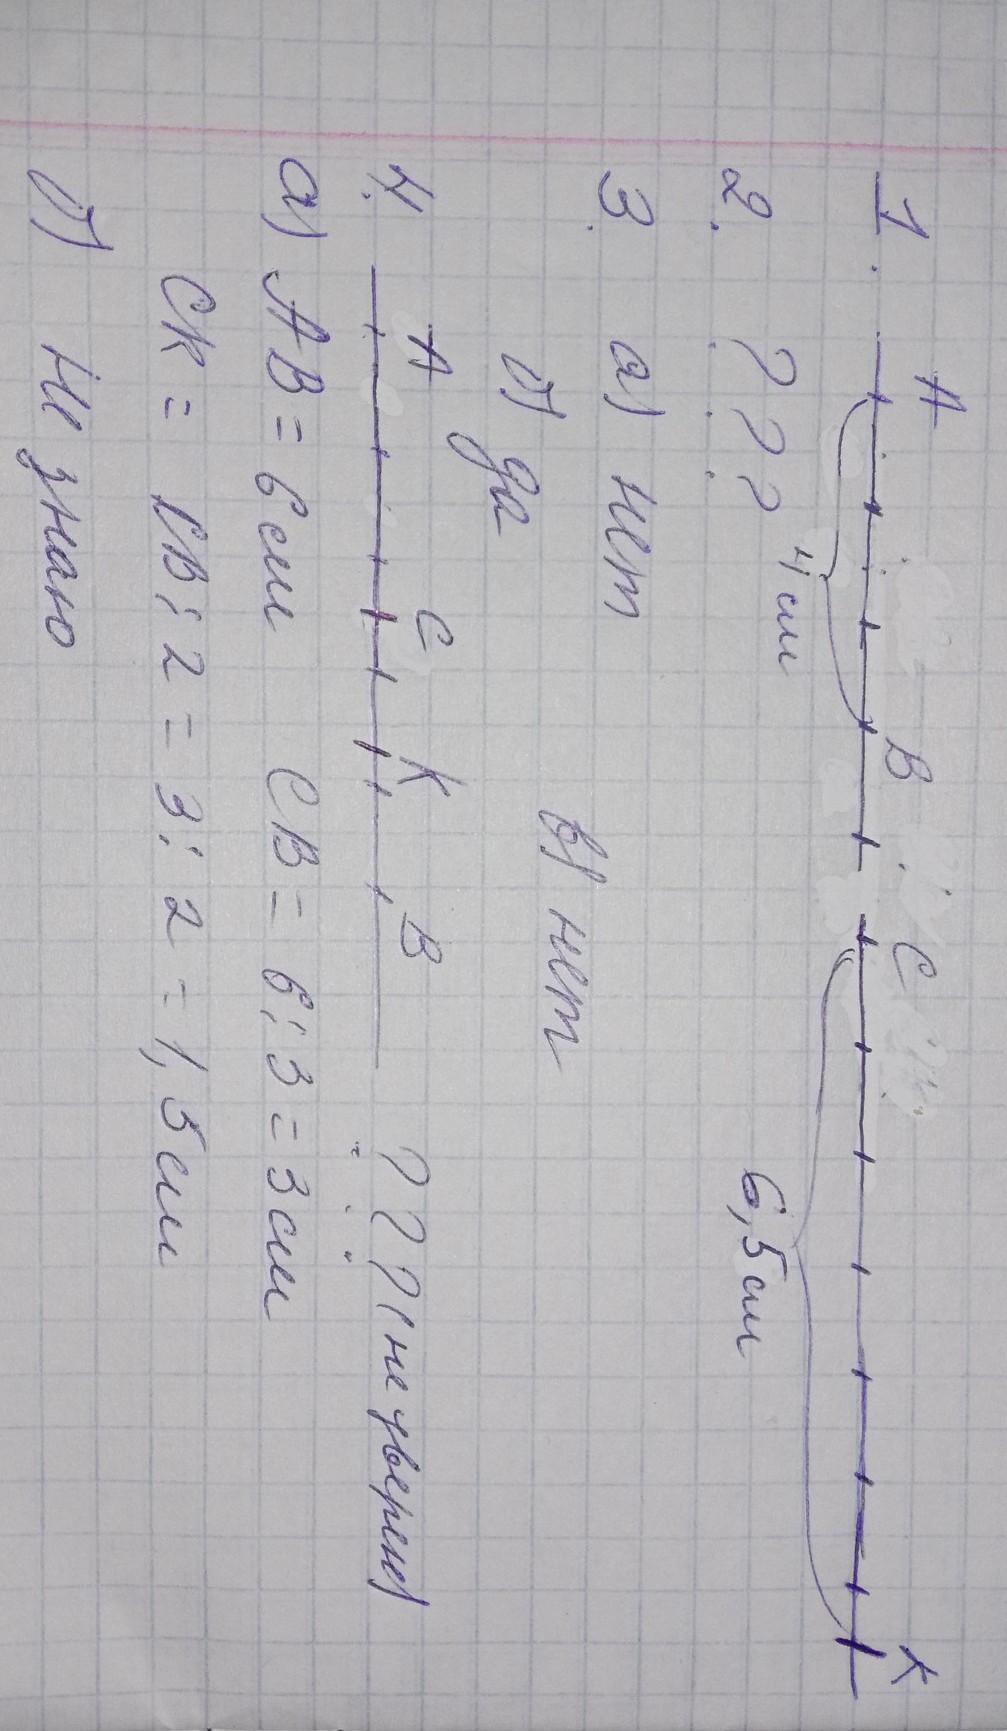 1. A B C K
4 см 6,5 см
2. ? ? ?
3. а) нет в) нет
б) да
4. A C K B ? ? ? (не уверен)
а) AB = 6 см CB = 6 : 3 = 3 см
CK = CB : 2 = 3 : 2 = 1,5 см
б) Не знаю